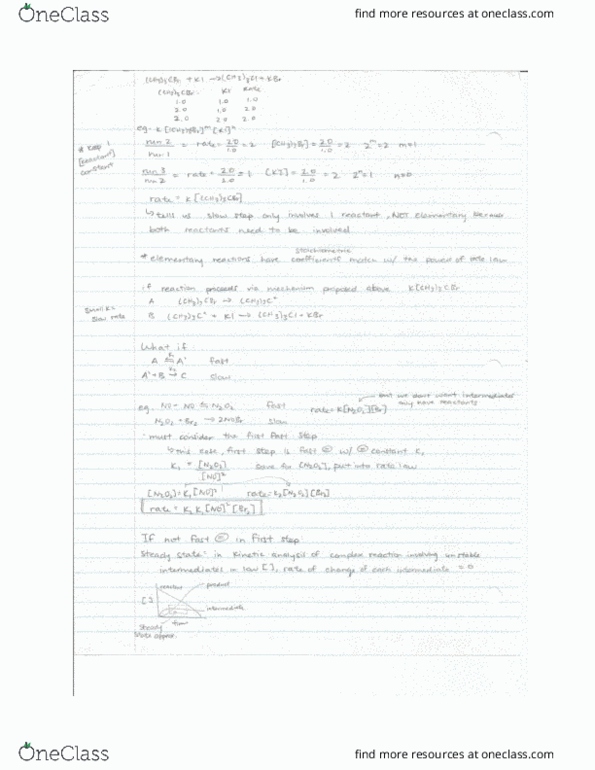 OneClass
find more resources at oneclass.com
(CH3)3CBr + KI → (CH3)3CI + KBr
(CH3)3CBr KI Rate
1.0 1.0 1.0
2.0 1.0 2.0
2.0 2.0 2.0
eg. K [(CH3)3Br]^m [KI]^n
* keep 1 [reactant] constant
run 2 / run 1 = rate = 2.0/1.0 = 2 [CH3)3Br] = 2.0/1.0 = 2 2^m = 2 m=1
run 3 / run 2 = rate = 2.0/2.0 = 1 [KI] = 2.0/1.0 = 2 2^n = 1 n=0
rate = K [(CH3)3CBr]
↳ tells us slow step only involves 1 reactant, NOT elementary because
both reactants need to be involved
stoichiometric
* elementary reactions have coefficients match w/ the power of rate law
if reaction proceeds via mechanism proposed above K[CH3)3CBr
small K1 slow rate
A (CH3)3CBr → (CH3)3C+
B (CH3)3C+ + KI → (CH3)3CI + KBr
What if
A ⇌ A' fast
A' + B → C slow
but we don't want intermediates
only have reactants
eg. NO + NO ⇌ N2O2 fast rate = K[N2O2][Br]
N2O2 + Br2 → 2NOBr slow
· must consider the first fast step
↳ this case, first step is fast ⇌ w/ ⇌ constant K1
K1 = [N2O2] / [NO]^2 solve for [N2O2], put into rate law
[N2O2] = K1[NO]^2 rate = K2[N2O2][Br2]
rate = K2 K1 [NO]^2 [Br2]
If not fast ⇌ in first step
Steady state: in kinetic analysis of complex reaction involving unstable
intermediates in low [ ], rate of change of each intermediate = 0
reactant
product
[ ]
intermediate
time
Steady
state approx.
OneClass
find more resources at oneclass.com